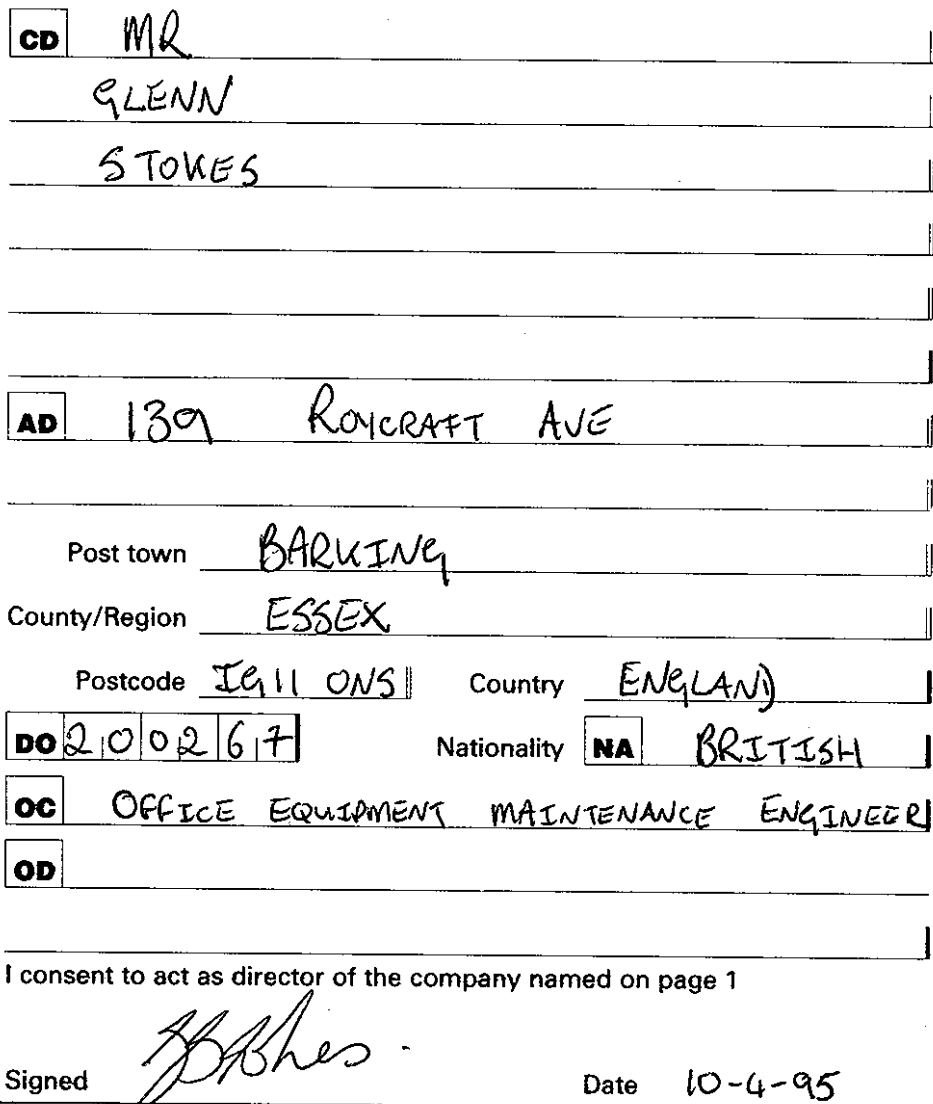 CD MR
GLENN
STOKES
AD 139 ROYCRAFT AVE
Post town BARKING
County/Region ESSEX
Postcode IG11 0NS Country ENGLAND
DO 200267 Nationality NA BRITISH
OC OFFICE EQUIPMENT MAINTENANCE ENGINEER
OD
I consent to act as director of the company named on page 1
Signed Date 10-4-95